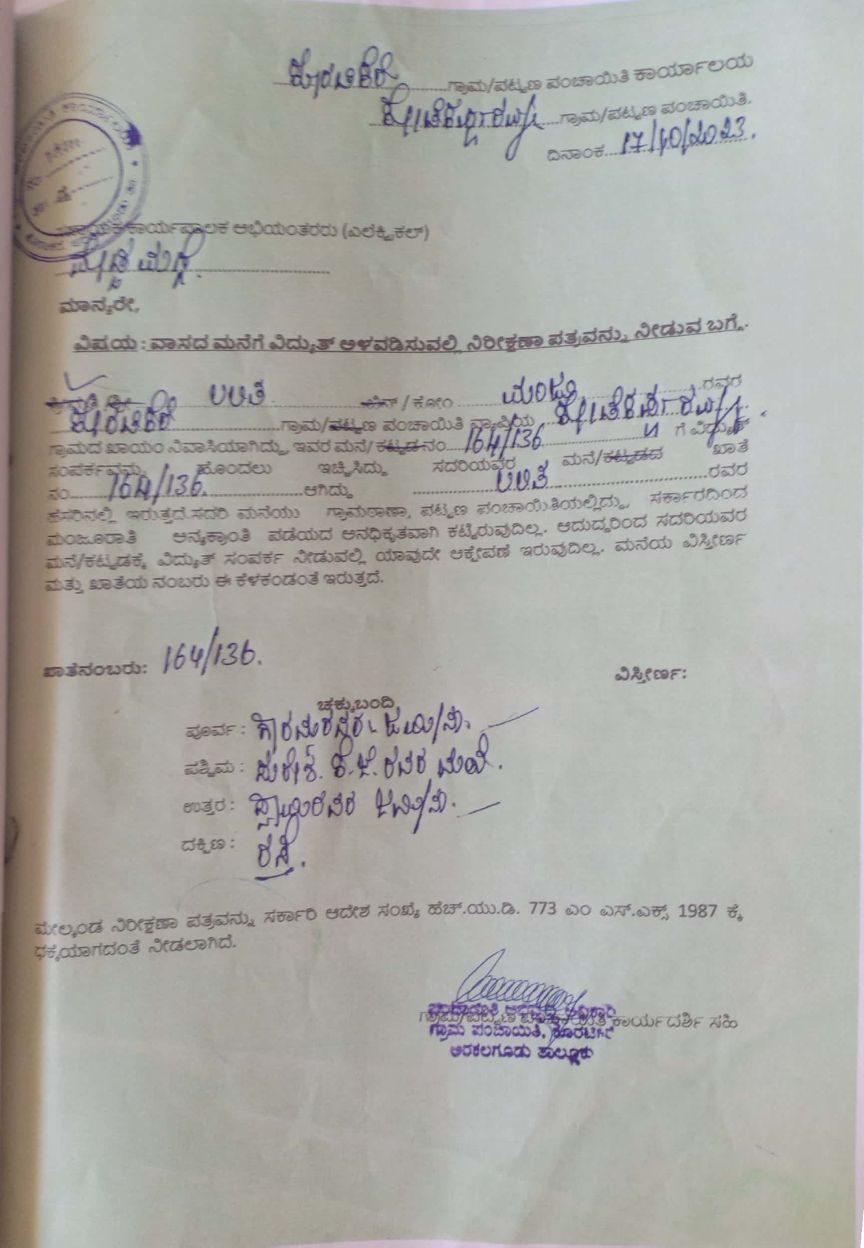 ಕೊರಟಿಕೆರೆ ಗ್ರಾಮ/ಪಟ್ಟಣ ಪಂಚಾಯಿತಿ ಕಾರ್ಯಾಲಯ
ಗ್ರಾಮ/ಪಟ್ಟಣ ಪಂಚಾಯಿತಿ.
ದಿನಾಂಕ 17/10/2023.
ಕಾರ್ಯಪಾಲಕ ಅಭಿಯಂತರರು (ಎಲೆಕ್ಟ್ರಿಕಲ್)
ಮಾನ್ಯರೇ,
ವಿಷಯ : ವಾಸದ ಮನೆಗೆ ವಿದ್ಯುತ್ ಅಳವಡಿಸುವಲ್ಲಿ ನಿರೀಕ್ಷಣಾ ಪತ್ರವನ್ನು ನೀಡುವ ಬಗ್ಗೆ.
ಲಲಿತ ಬಿನ್ / ಕೋಂ ಮಂಜು ರವರ
ಕೊರಟಿಕೆರೆ ಗ್ರಾಮ/ಪಟ್ಟಣ ಪಂಚಾಯಿತಿ ವ್ಯಾಪ್ತಿಯ
ಗ್ರಾಮದ ಖಾಯಂ ನಿವಾಸಿಯಾಗಿದ್ದು, ಇವರ ಮನೆ/ಕಟ್ಟಡ ನಂ 164/136 ಗೆ ವಿದ್ಯುತ್
ಸಂಪರ್ಕವನ್ನು ಹೊಂದಲು ಇಚ್ಚಿಸಿದ್ದು ಸದರಿಯವರ ಮನೆ/ಕಟ್ಟಡದ ಖಾತೆ
ನಂ 164/136. ಆಗಿದ್ದು ಲಲಿತ ರವರ
ಹೆಸರಿನಲ್ಲಿ ಇರುತ್ತದೆ.ಸದರಿ ಮನೆಯು ಗ್ರಾಮಠಾಣಾ, ಪಟ್ಟಣ ಪಂಚಾಯಿತಿಯಲ್ಲಿದ್ದು, ಸರ್ಕಾರದಿಂದ
ಮಂಜೂರಾತಿ ಅನ್ಯಕ್ರಾಂತಿ ಪಡೆಯದ ಅನಧಿಕೃತವಾಗಿ ಕಟ್ಟಿರುವುದಿಲ್ಲ. ಆದುದ್ದರಿಂದ ಸದರಿಯವರ
ಮನೆ/ಕಟ್ಟಡಕ್ಕೆ ವಿದ್ಯುತ್ ಸಂಪರ್ಕ ನೀಡುವಲ್ಲಿ ಯಾವುದೇ ಆಕ್ಷೇಪಣೆ ಇರುವುದಿಲ್ಲ. ಮನೆಯ ವಿಸ್ತೀರ್ಣ
ಮತ್ತು ಖಾತೆಯ ನಂಬರು ಈ ಕೆಳಕಂಡಂತೆ ಇರುತ್ತದೆ.
ಖಾತೆನಂಬರು: 164/136. ವಿಸ್ತೀರ್ಣ:
ಚಕ್ಕುಬಂದಿ
ಪೂರ್ವ :
ಪಶ್ಚಿಮ : ಸುರೇಶ. ಕೆ.ಜೆ. ರವರ ಮನೆ.
ಉತ್ತರ :
ದಕ್ಷಿಣ : ರಸ್ತೆ.
ಮೇಲ್ಕಂಡ ನಿರೀಕ್ಷಣಾ ಪತ್ರವನ್ನು ಸರ್ಕಾರಿ ಆದೇಶ ಸಂಖ್ಯೆ ಹೆಚ್.ಯು.ಡಿ. 773 ಎಂ ಎಸ್.ಎಕ್ಸ್ 1987 ಕ್ಕೆ
ಧಕ್ಕೆಯಾಗದಂತೆ ನೀಡಲಾಗಿದೆ.
ಗ್ರಾಮ/ಪಟ್ಟಣ ಪಂಚಾಯಿತಿ ಕಾರ್ಯದರ್ಶಿ ಸಹಿ
ಗ್ರಾಮ ಪಂಚಾಯಿತಿ, ಕೊರಟಿಕೆರೆ
ಅರಕಲಗೂಡು ತಾಲ್ಲೂಕು